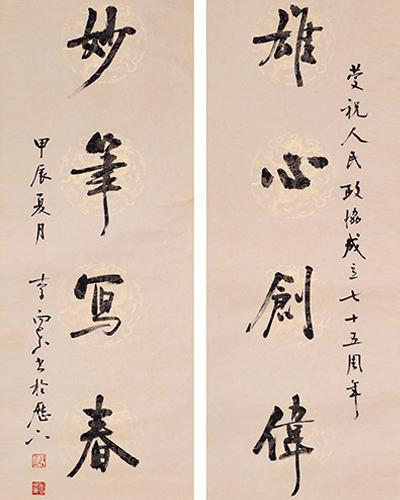 慶祝人民政協成立七十五周年
雄心創偉
妙筆写春
甲辰夏月 李 書於歷下